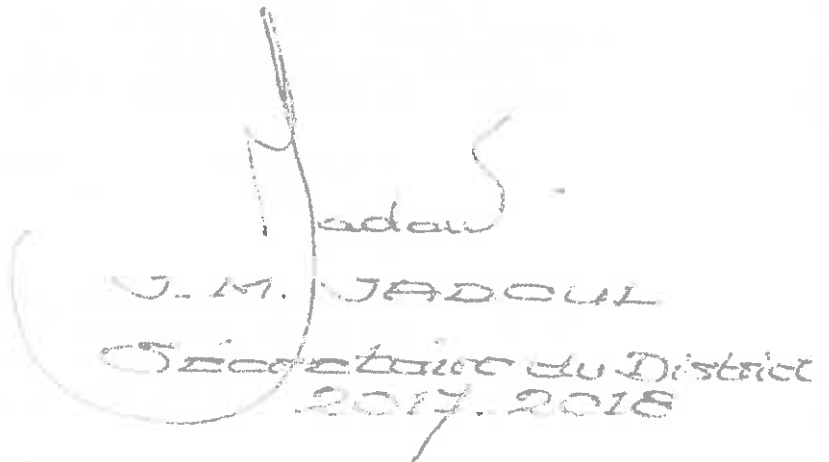 Jadoul
J.M. JADOUL
Secrétaire du District
2017.2018